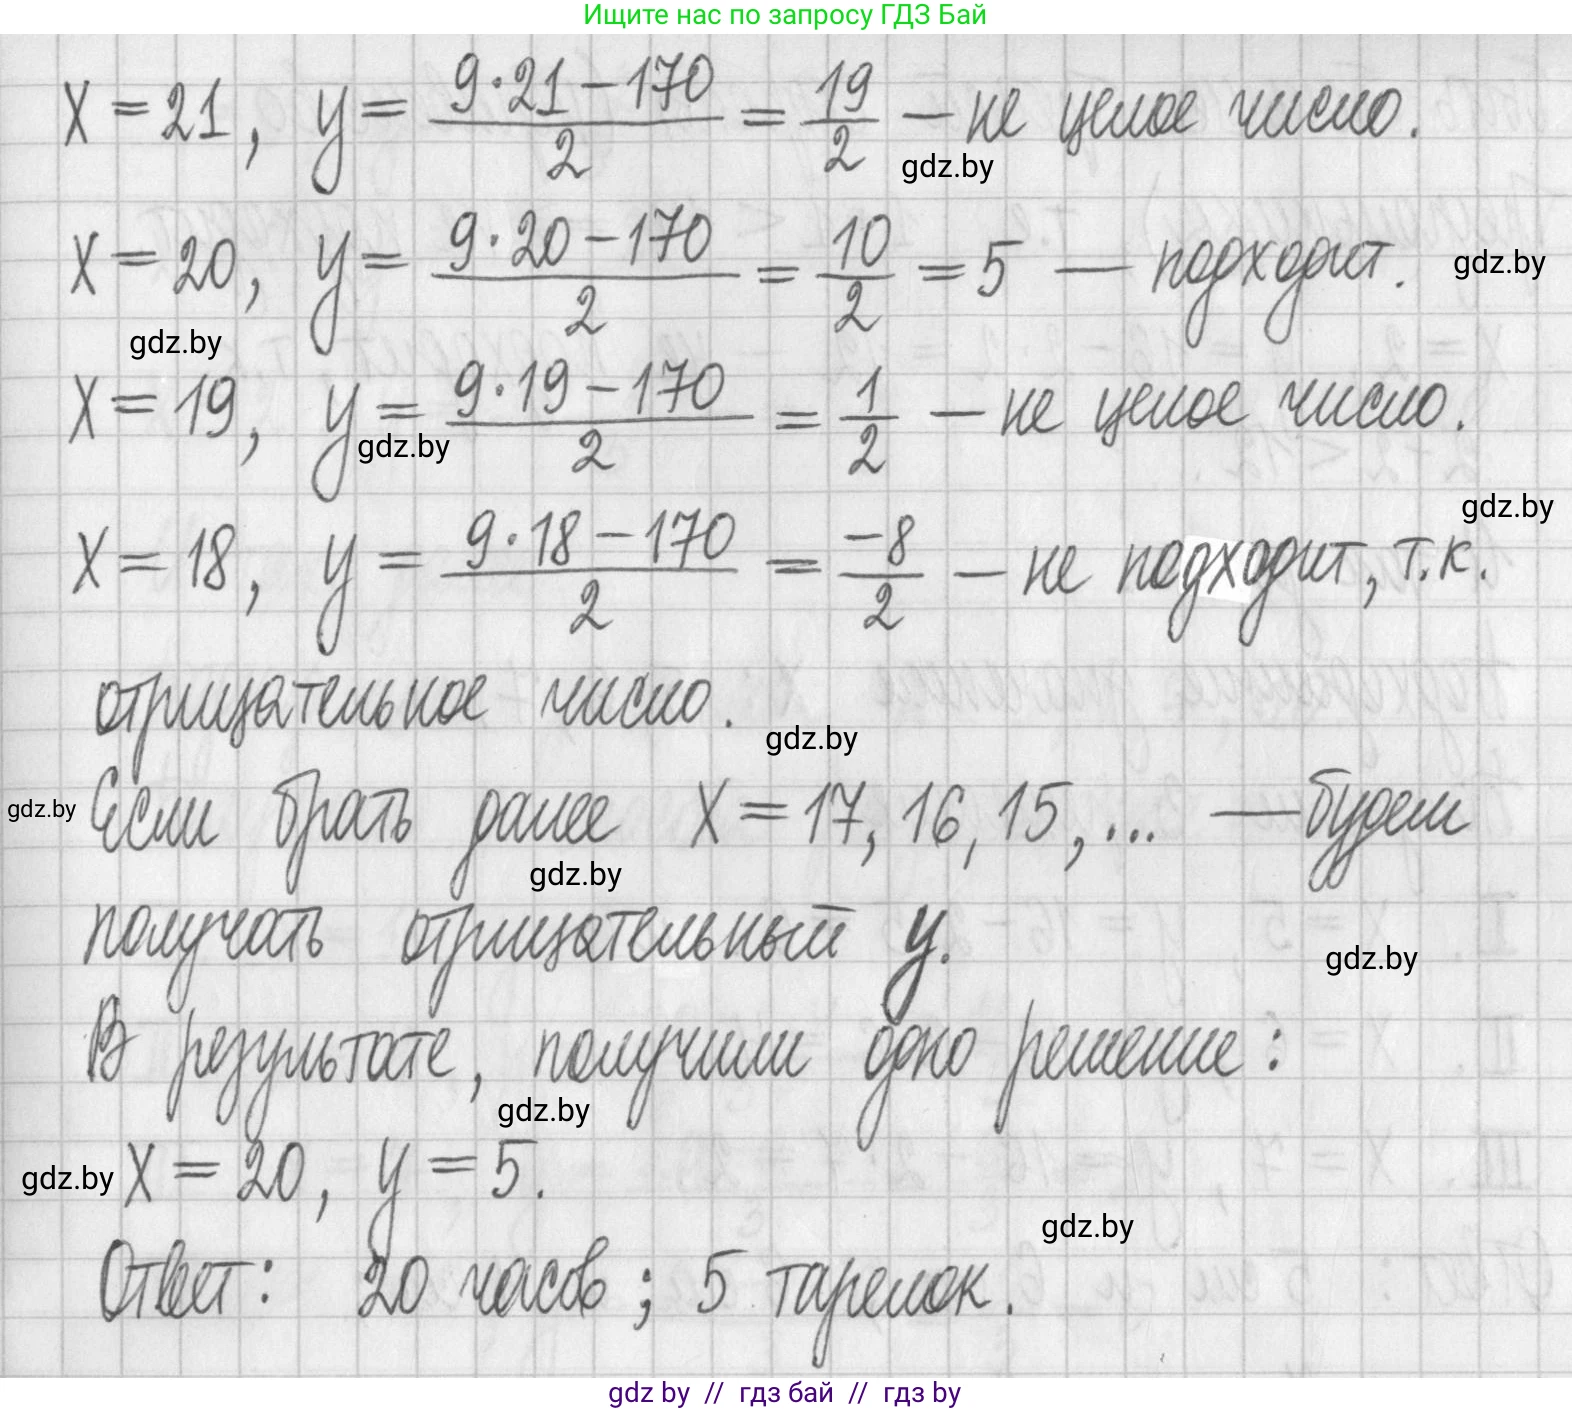 Ищите нас по запросу ГДЗ Бай
x = 21, y = (9·21 − 170)/2 = 19/2 — не целое число.
gdz.by
x = 20, y = (9·20 − 170)/2 = 10/2 = 5 — подходит. gdz.by
gdz.by
x = 19, y = (9·19 − 170)/2 = 1/2 — не целое число.
gdz.by
gdz.by
x = 18, y = (9·18 − 170)/2 = −8/2 — не подходит, т.к.
отрицательное число.
gdz.by
gdz.by Если брать далее x = 17, 16, 15, ... — будем
gdz.by
получать отрицательный y.
gdz.by
В результате, получили одно решение:
gdz.by
gdz.by x = 20, y = 5.
gdz.by
Ответ: 20 часов; 5 тарелок.
gdz by // гдз бай // гдз by